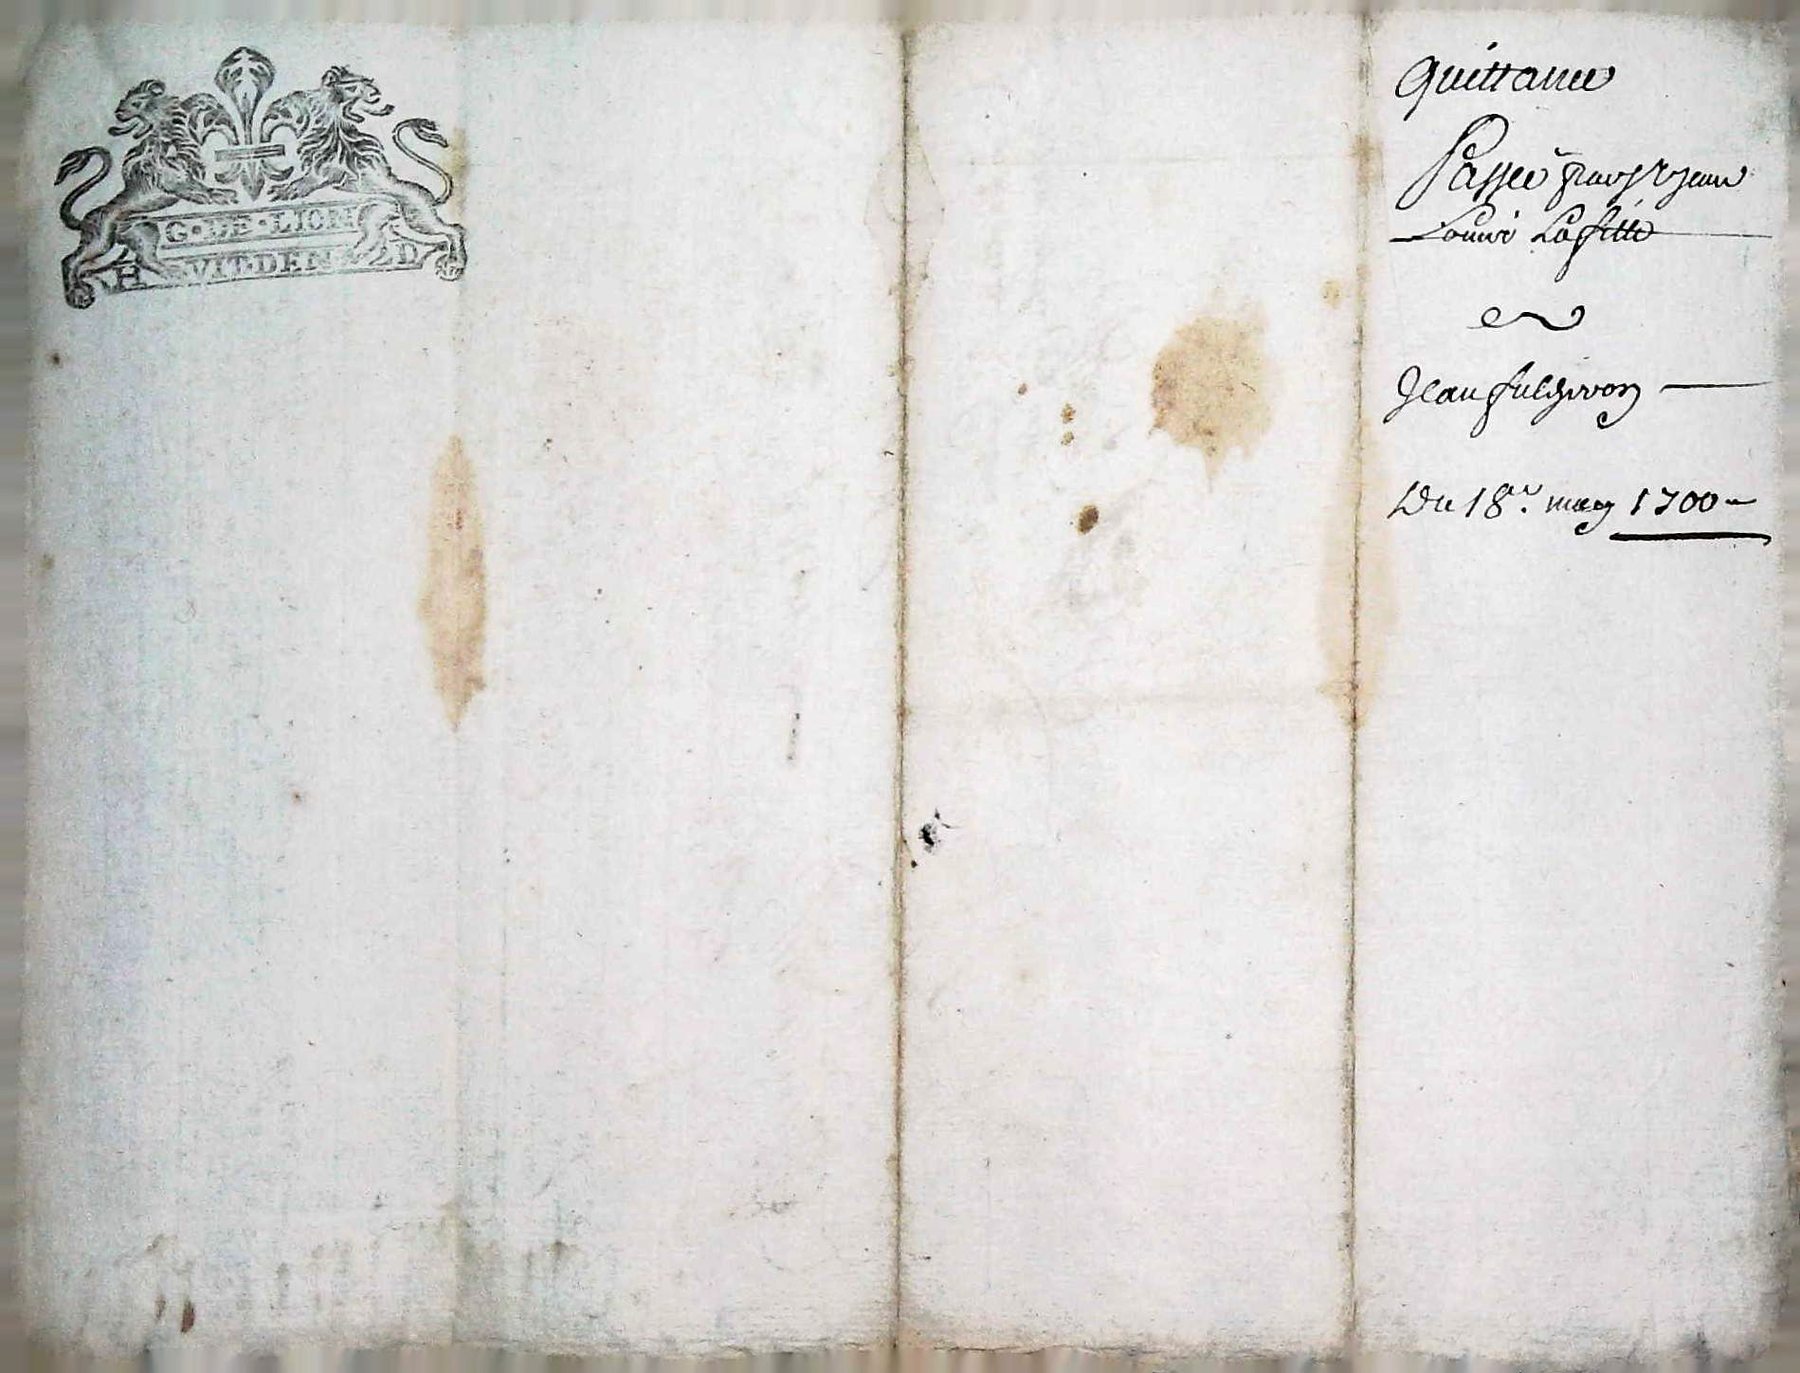 G·DE·LION
H VIT·DEN D
Quittance
Passée par Sr Jean
Louis Laffitte
Jean
Du 18e. may 1700